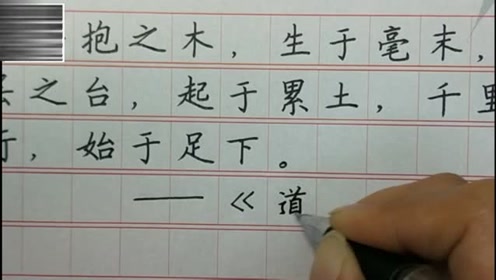 抱之木，生于毫末，
层之台，起于累土，千里
行，始于足下。
——《道